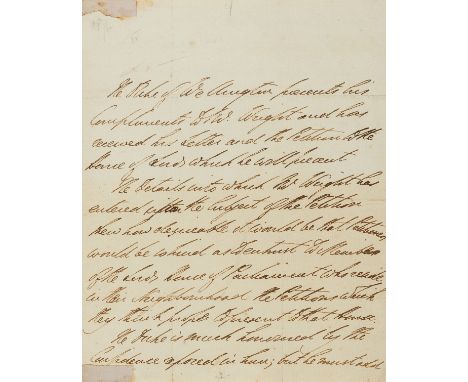 The Duke of Wellington presents his
Compliments to Mr. Wright and has
received his Letter and the Petition to the
House of Lords which he will present
The Details into which Mr Wright has
entered upon the Subject of the Petition
shew how desireable it would be that Petitioners
would be to Members
of the Lords House of Parliament who reside
in their Neighbourhood the Petitions which
they think proper to present to that House.
The Duke is much honoured by the
Confidence reposed in him; but he must add